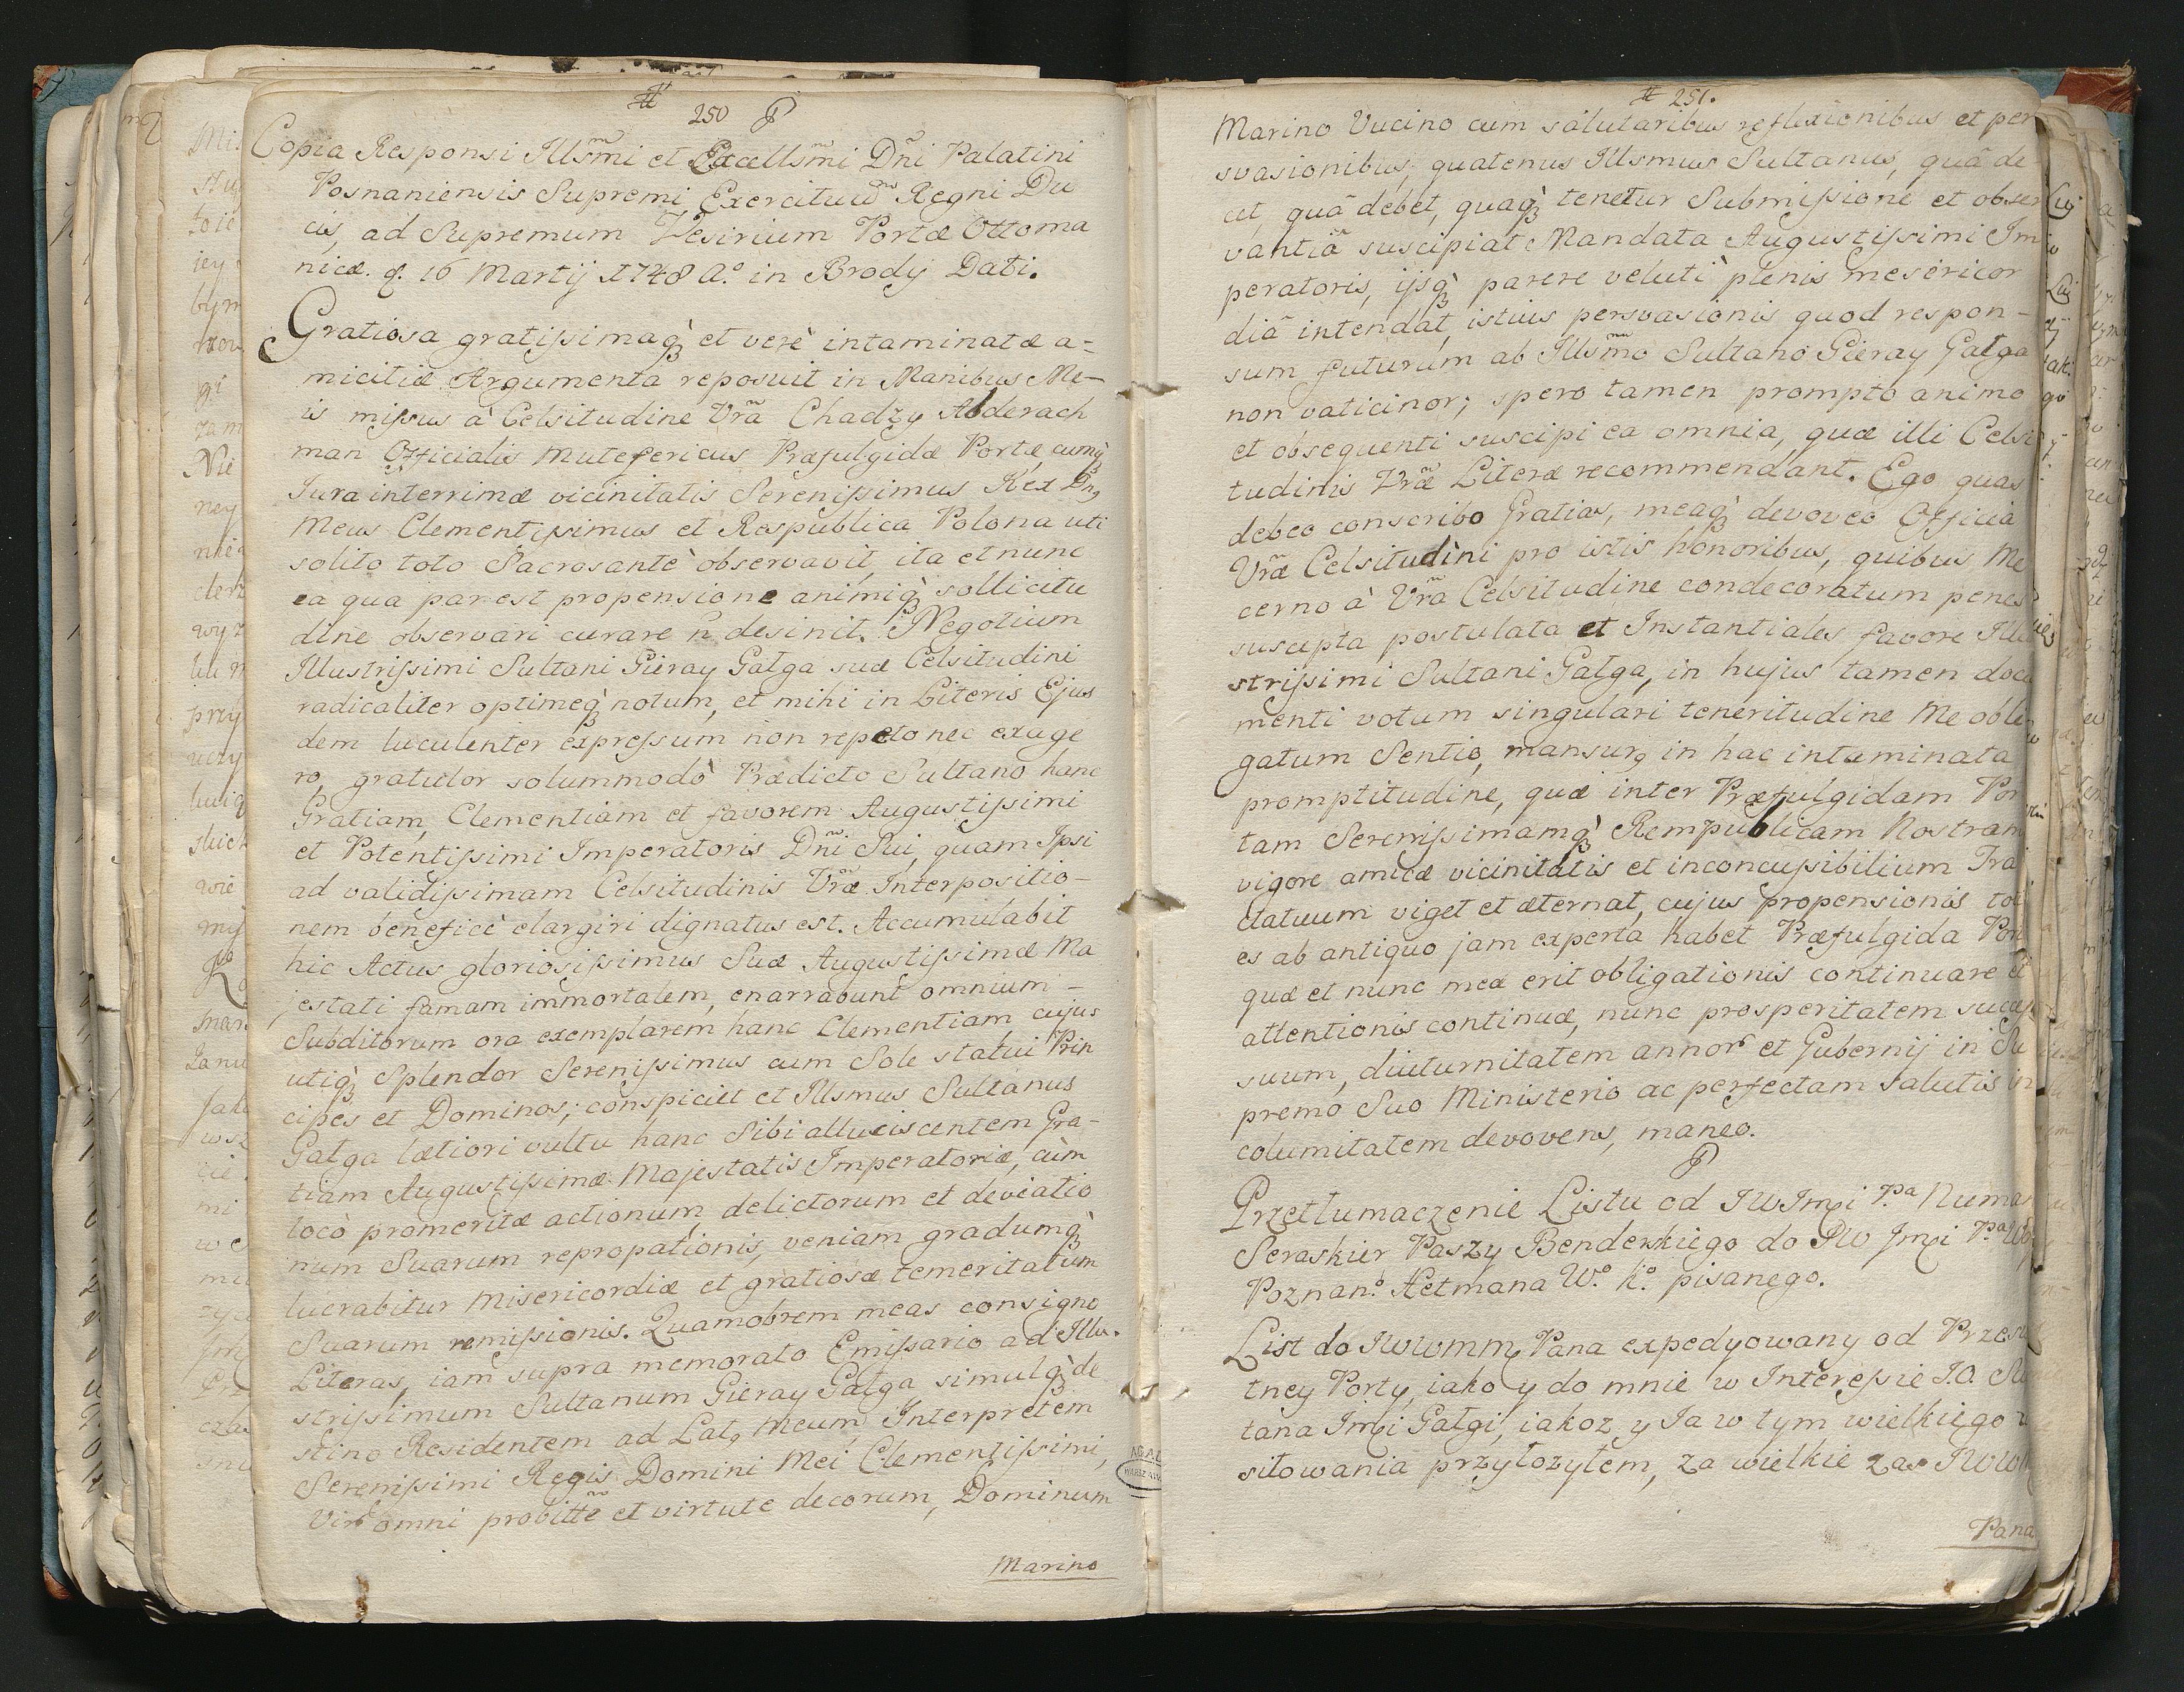 250
Copia Responsi Illsm̃i et Excellsm̃i Dñi Palatini
Posnaniensis Supremi Exercituũ Regni Du
cis, ad Supremum Vesirium Portæ Ottoma
nicæ. d. 16 Martij 1748 A.o in Brody Dati.
Gratiosa gratissimaq̀ et verè intaminatæ a-
micitiæ Argumenta reposuit in Manibus Me-
is missus à Celsitudine Vr̃a Chadzy Abderach
man Officialis Mutefericus Præfulgidæ Portæ, cumq̀
Jura interrimæ vicinitatis Serenissimus Rex Dn9
Meus Clementissimus et Respublica Polona uti
solito toto Sacrosantè observavit, ita et nunc
ea qua par est propensione animiq̀ sollicitu
dine observari curare ñ desinit. Negotium
Illustrissimi Sultani Gieray Gałga suæ Celsitudini
radicaliter optimeq̀ notum, et mihi in Literis Ejus
dem luculenter expressum non repeto nec exage
ro, gratulor solummodò Prædicto Sultano hanc
Gratiam, Clementiam et favorem Augustissimi
et Potentissimi Imperatoris Dñi Sui, quam Ipsi
ad validissimam Celsitudinis Vr̃æ Interpositio-
nem beneficè elargiri dignatus est. Accumulabit
hic Actus gloriosissimus Suæ Augustissimæ Ma
jestati famam immortalem, enarrabunt omnium-
Subditorum ora exemplarem hanc Clementiam, cujus
utiq̀ Splendor Serenissimus cum Sole statui Prin
cipes et Dominos; conspiciet et Illsmus Sultanus
Gałga lætiori vultu hanc Sibi alluciscentem Gra-
tiam Augustissimæ Majestatis Imperatoriæ, cùm
locò promeritæ actionum, delictorum et deviatio
num Suarum repropationis, veniam gradumq̀
lucrabitur Misericordiæ et gratiosæ temeritatum
Suarum remissionis. Quamobrem meas consigno
Literas, iam supra memorato Emissario ad Illu.
strissimum Sultanum Gieray Gałga simulq̀ de
stino Residentem ad Lat9 Meum, Interpretem
Serenissimi Regis Domini Mei Clementissimi,
Virũ omni probitt̃e et virtute decorum, Dominum
Marino
251.
Marino Vucino cum salutaribus reflexionibus et per
svasionibus, quatenus Illsmus Sultanus, quâ de
cet, quâ debet, quaq̀ tenetur Submissione et obser
vantiâ suscipiat Mandata Augustissimi Im
peratoris, ijsq̀ parere veluti plenis mesericor
diâ intendat, istius persvasionis quod respon-
sum futurum ab Illsm̃o Sultano Gieray Gałga
non vaticinor; spero tamen prompto animo
et obsequenti suscipi ea omnia, quæ illi Celsi
tudinis Vr̃æ Literæ recommendant. Ego quas
debeo conscribo Gratias, meaq̀ devoveo Officia
Vr̃æ Celsitudini pro istis honoribus, quibus Me
cerno à Vr̃a Celsitudine condecoratum penes
suscepta postulata et Instantiales favore Illu
strissimi Sultani Gałga, in hujus tamen docu
menti votum singulari teneritudine Me obli
gatum Sentio, mansur9 in hac intaminata
promptitudine, quæ inter Præfulgidam Por
tam Serenissimamq̀ Rempublicam Nostram
vigore amicæ vicinitatis et inconcussibilium Tra
ctatuum viget et æternat, cujus propensionis toti
es ab antiquo jam experta habet Præfulgida Por
quæ et nunc meæ erit obligationis continuare et
attentionis continuæ, nunc prosperitatem succes
suum, diuturnitatem annor̃ et Gubernij in Su
premo Suo Ministerio ac perfectam salutis in
columitatem devovens, maneo.
Przetłumaczenie Listu od JWJmći P.a Numan
Seraskier Paszy Benderskiego do JW Jmći P.a Wo
Poznan.o Hetmana W.o K.o pisanego.
List do JWWMM Pana expedyowany od Przeswi
tney Porty, iako y do mnie w Interessie J.O. Sul
tana Jmći Gałgi, iakoz y Ja w tym wielkiego u
siłowania przyłozyłem, za wielkie zas JWW
Pana